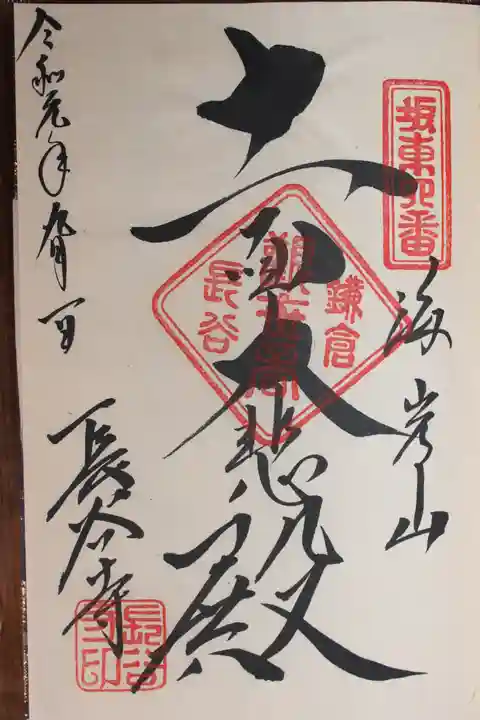 坂東四番
海光山
十一面大悲殿
鎌倉
觀世音
長谷
令和元年九月一日
長谷寺
長谷寺印